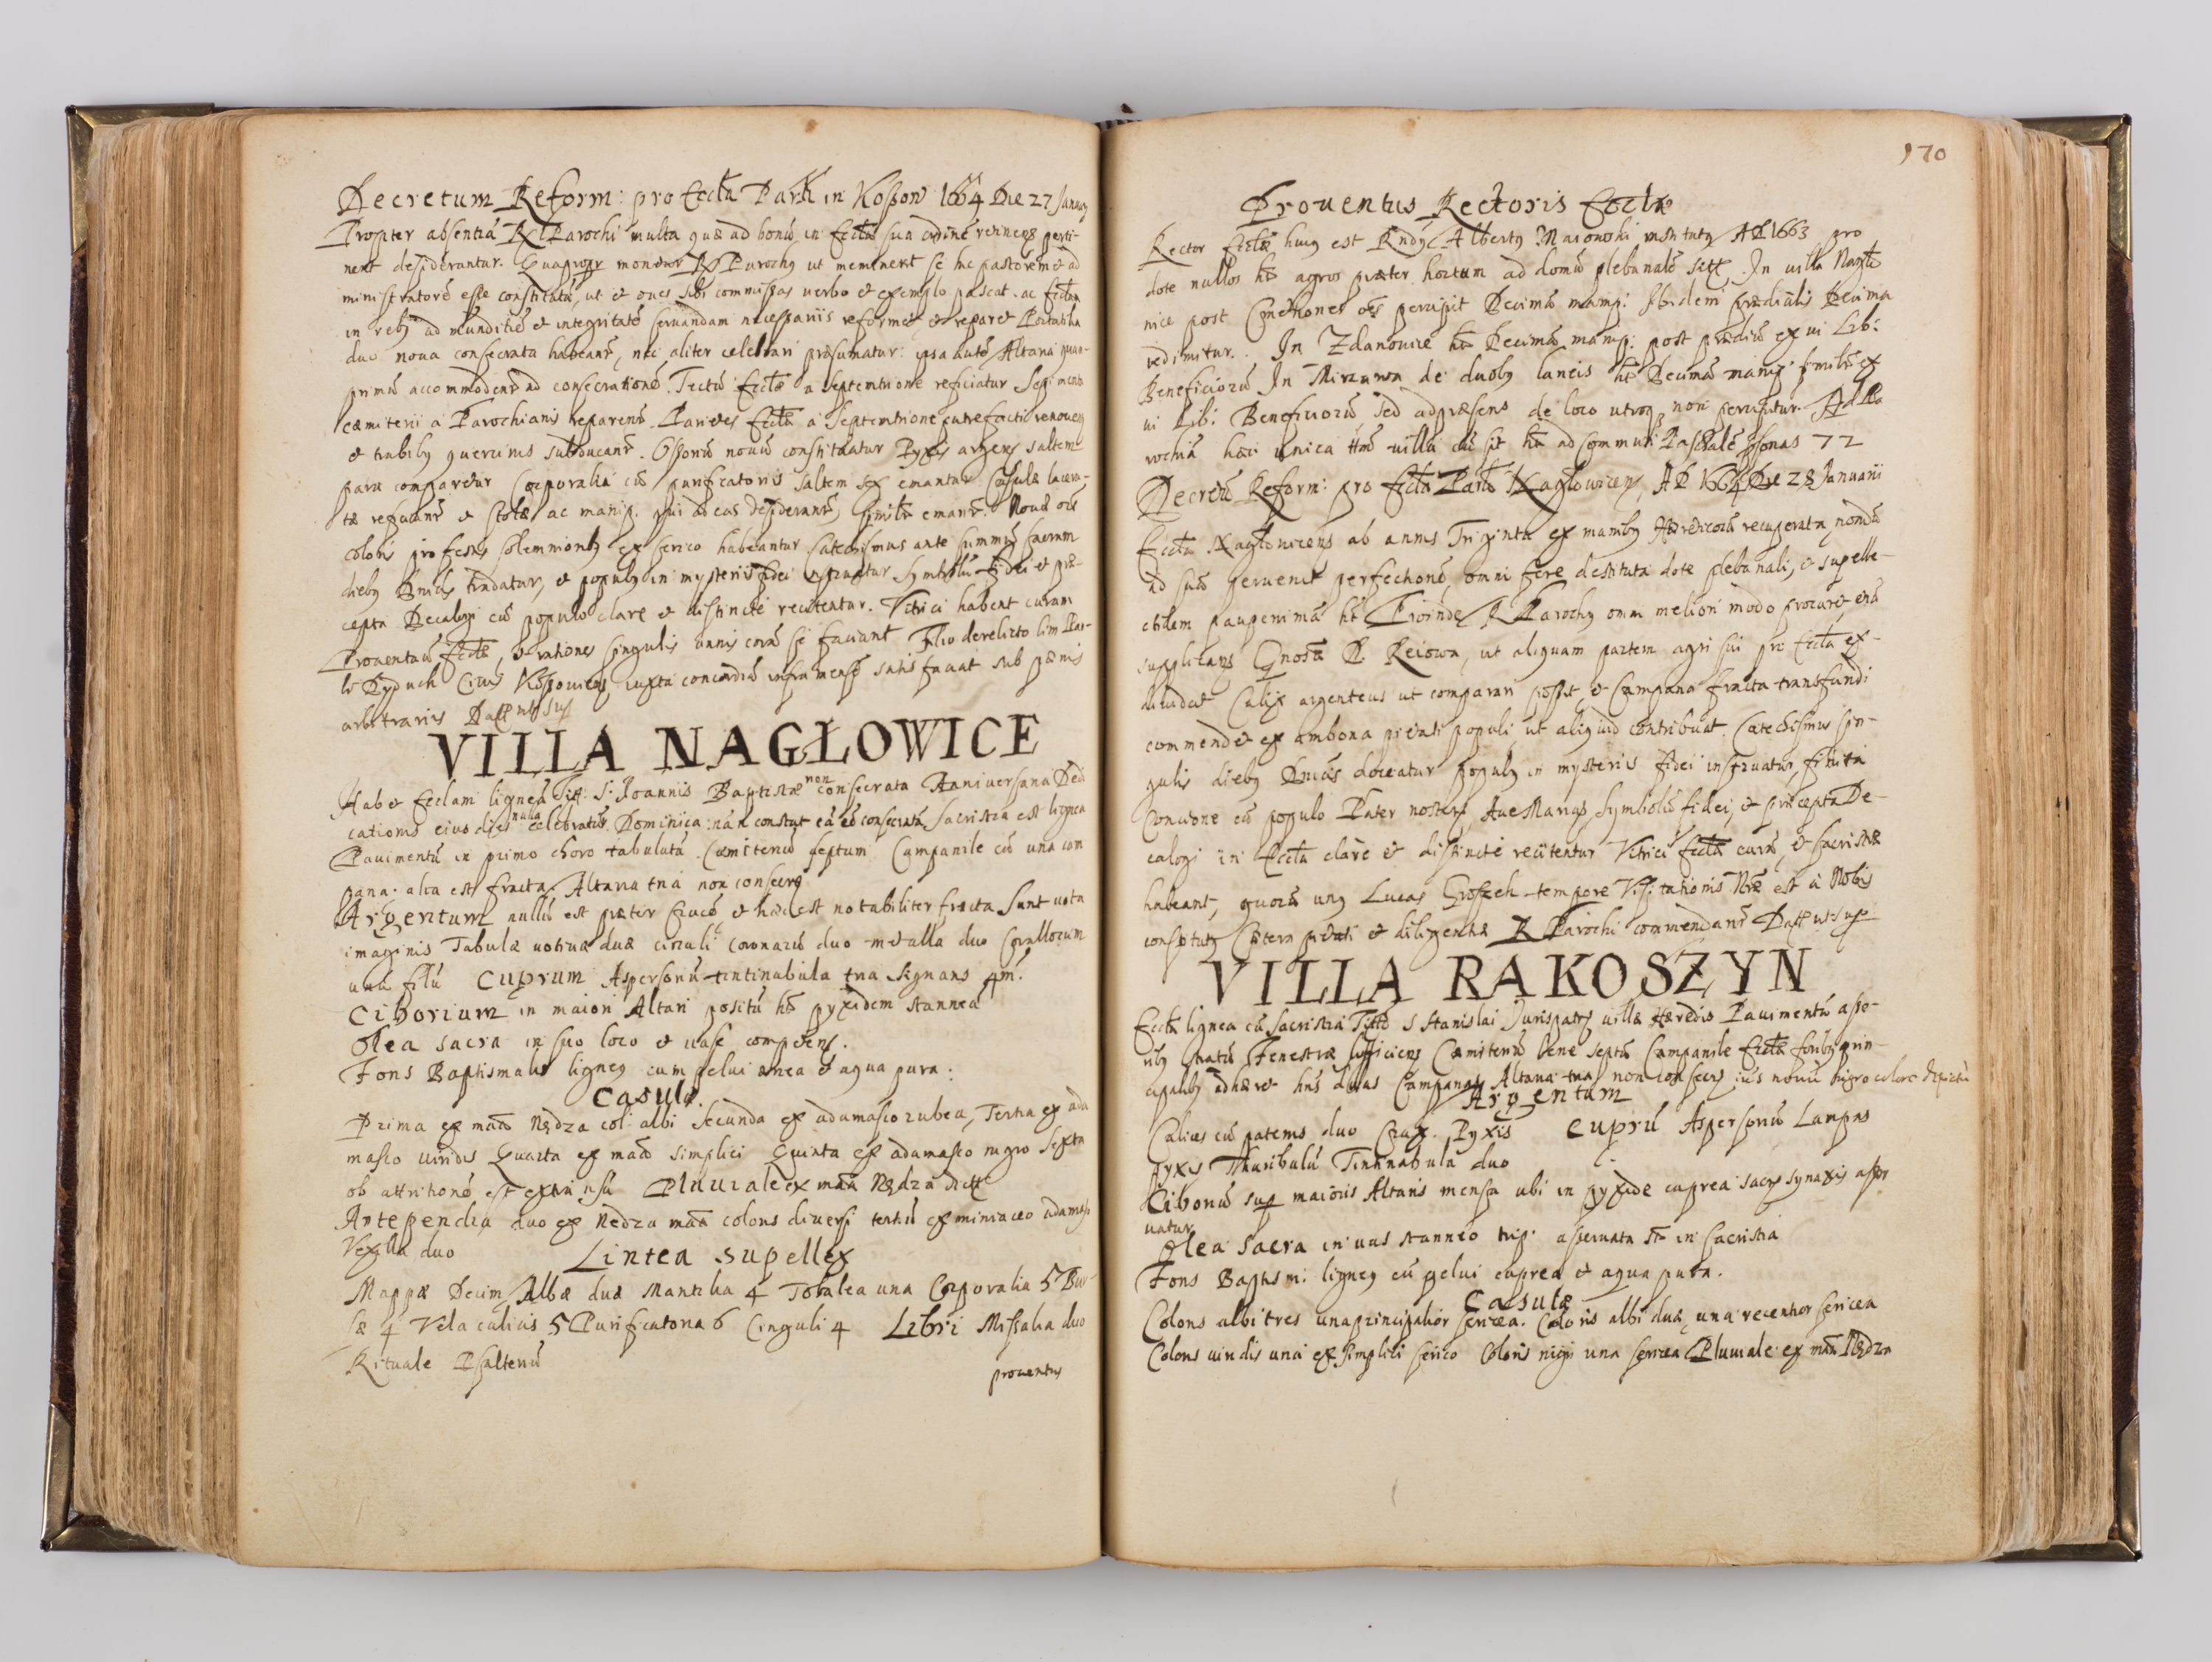 Decretum Reform: pro Eccla Parli in Kossow 1664 Die 27 January
Propter absentiā R Parochi multa quæ ad bonū in Eccla sua ordinē
nent desiderantur. Quapropr monetur R Parochus ut meminerit se hic pastorem et ad
ministratorē esse constitutū, ut et oues sibi commissas uerbo et exemplo pascat. ac Ecclam
in rebus ad munditiē et integritatē seruandam necessariis reformet et reparet Portatilia
duo noua consecrata habeant, nec aliter celebrari præsumatur: ipsa autē Altaria quam-
primū accommodent ad consecrationē. Tectū Ecclæ a septemtrione reficiatur Sepimenta
cæmiterii a Parochianis reparent. Parietes Eccla a Septemtrione putrefacti
et trabibus quercinis subducant. Ossoriū nouū constituatur Pyxis argens saltem
parua comparetur Corporalia cū purificatoriis saltem sex emantur Casulæ lacera-
tæ reficiant et stolæ ac manip. qui ad eas desiderant, emant.
coloris pro festis solemniorib ex serico habeantur Catechismus ante summū sacrum
diebus Dnicis tradatur, et populus in mysteriis fidei instruatur Symbolū fidei et præ-
cepta Decalogi cū populo clare et distincte recitentur. Vitrici habent curam
Prouentuū Ecclæ, et rationes singulis annis corā se faciant Filio derelicto
Ciuis iuxta concordiā infra mensē satisfaciat sub pænis
arbitrariis Datt ut sup
VILLA NAGŁOWICE
Habet Ecclam ligneā Titt. S. Joannis Baptistæ non consecrata Anniversaria Dedi
cationis eius dies nulla celebratur Dominica: nā non constat eā eē consecratā Sacristia est lignea
Pauimentū in primo choro tabulatū Cæmiteriū septum Campanile cū una cam
pana. alia est fracta. Altaria tria non consecr.
Argentum nullū est præter Crucē et hæc est notabiliter fracta Sunt uota
imaginis Tabulæ uotiuæ duæ circuli coronarū duo metalla duo Corallorum
unū filū Cuprum Aspersoriū tintinabula tria
Ciborium in maiori Altari positū hēt pyxidem stanneā
Olea sacra in suo loco et uase competens.
Fons Baptismalis ligneus cum pelui ænea et aqua pura.
Casulæ.
Prima ex mātā Nędza col: albi Secunda ex adamasco rubea, Tertia ex ada
masco uiridis Quarta ex mātā simplici Quinta ex adamasco nigro Sexta
ob attritionē est extra usū Pluuiale ex mātā Nędza
Antepencha duo ex Nedza mātā coloris diuersi tertiū ex miniaceo adamasco
Vexilla duo
Lintea supellex
Mappæ Decim Albæ duæ Mantilia 4 Tobalea una Corporalia 5 Bur-
sæ 4 Vela calicis 5 Purificatoria 6 Cinguli 4 Libri Missalia duo
Rituale Psalteriū
prouentus
170
Prouentus Rectoris Ecclæ
Rector Ecclæ huius est Rndus Albertus institutus AD 1663 pro
dote nullos hēt agros præter hortum ad domū plebanalē In uilla Nagło
nice post Cmethones percipit Decimā manip: Ibidem prædialis Decima
redimitur. In Zdanowice hēt Decimā manip: post prædiū ex ui Lib:
Beneficiorū In Mirzawa de duobus laneis hēt Decimā manip: ex
ui Lib: Beneficiorū sed ad præsens de loco utroq non percipitur. Ad Pa
rochiā hæc unica uilla cū sit hēt ad Communi Paschalē psonas 72
Decretū Reform: pro Eccla Parli Nagłowicens, AD 1664 Die 28 Januarii
Eccla Nagłouicens ab annis Triginta ex manibus Hæreticorū recuperata, nondū
ad suā peruenit perfectionē, omni fere destituta dote plebanali, et supelle-
ctilem pauperrimā hēt Proinde R Parochus omni meliori modo procuret erū
supplicans Gnosū D. Reiowa, ut aliquam partem agri sui pro Eccla ex-
diuidat Calix argenteus ut comparari possit et Campana fracta transfundi
commendet ex ambona pietati populi, ut aliquid contribuat. Catechismus sin-
gulis diebus Dnicis doceatur populus in mysteriis fidei instruatur, finita
Concione cū populo Pater noster, Aue Maria, Symbolū fidei, et præcepta De-
calogi in Eccla clarè et distinctè recitentur Vitrici Ecclæ curā, et sacristiæ
habeant, quorū unus Lucas tempore Visitationis Nræ est à Nobis
constitutus Cætera pietati et diligentiæ R Parochi commendant Datt ut sup
VILLA RAKOSZYN
Eccla lignea cū Sacristia Titlo S Stanislai Jurispatrs uillæ Hæredis Pauimentū asse-
rib stratū Fenestræ sufficiens Cæmiteriū bene septū Campanile Eccla foribus prin-
cipalibus adhæret hns duas Campanas Altaria tria non consecr nigro colore depictū
Argentum
Calices cū patenis duo Crux. Pyxis Cuprū Aspersoriū Lampas
pyxis Thuribulū Tintinabula duo
Ciboriū sup maioris Altaris mensa ubi in pyxide cuprea sacra synaxis asser
uatur
Olea sacra in uas stanneo trip: asseruata st in sacristia
Fons Baptismi ligneus cū pelui cuprea et aqua pura.
Casulæ
Coloris albi tres una principalior sericea. Coloris albi duæ, una recentior sericea
Coloris uiridis una ex simplici serico Coloris nigri una sericea Pluuiale ex mātā Nędza